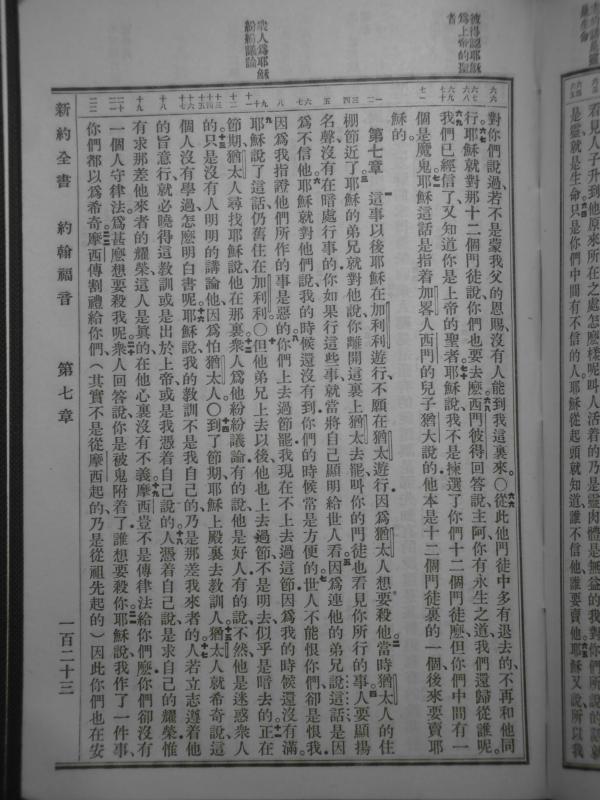 彼得認耶穌
爲上帝的聖
者
衆人爲耶穌
紛紛議論
對你們說過若不是蒙我父的恩賜沒有人能到我這裏來○從此他門徒中多有退去的不再和他同
行耶穌就對那十二個門徒說你們也要去麽西門彼得回答說主阿你有永生之道我們還歸從誰呢
我們已經信了又知道你是上帝的聖者耶穌說我不是揀選了你們十二個門徒麽但你們中間有一
個是魔鬼耶穌這話是指着加畧人西門的兒子猶大說的他本是十二個門徒裏的一個後來要賣耶
穌的
第七章 這事以後耶穌在加利利遊行不願在猶太遊行因爲猶太人想要殺他當時猶太人的住
棚節近了耶穌的弟兄就對他說你離開這裏上猶太去罷叫你的門徒也看見你所行的事人要顯揚
名聲沒有在暗處行事的你如果行這些事就當將自己顯明給世人看因爲連他的弟兄說這話是因
爲不信他耶穌就對他們說我的時候還沒有到你們的時候常是方便的世人不能恨你們卻是恨我
因爲我指證他們所作的事是惡的你們上去過節罷我現在不上去過這節因爲我的時候還沒有滿
耶穌說了這話仍舊住在加利利○但他弟兄上去以後他也上去過節不是明去似乎是暗去的正在
節期猶太人尋找耶穌說他在那裏衆人爲他紛紛議論有的說他是好人有的說不然他是迷惑衆人
的只是沒有人明明的講論他因爲怕猶太人○到了節期耶穌上殿裏去敎訓人猶太人就希奇說這
個人沒有學過怎麽明白書呢耶穌說我的敎訓不是我自己的乃是那差我來者的人若立志遵着他
的旨意行就必曉得這敎訓或是出於上帝或是我憑着自己說的人憑着自己說是求自己的耀榮惟
有求那差他來者的耀榮這人是眞的在他心裏沒有不義摩西豈不是傳律法給你們麽你們卻沒有
一個人守律法爲甚麽想要殺我呢衆人回答說你是被鬼附着了誰想要殺你耶穌說我作了一件事
你們都以爲希奇摩西傳割禮給你們(其實不是從摩西起的乃是從祖先起的)因此你們也在安
新約全書 約翰福音 第七章 一百二十三